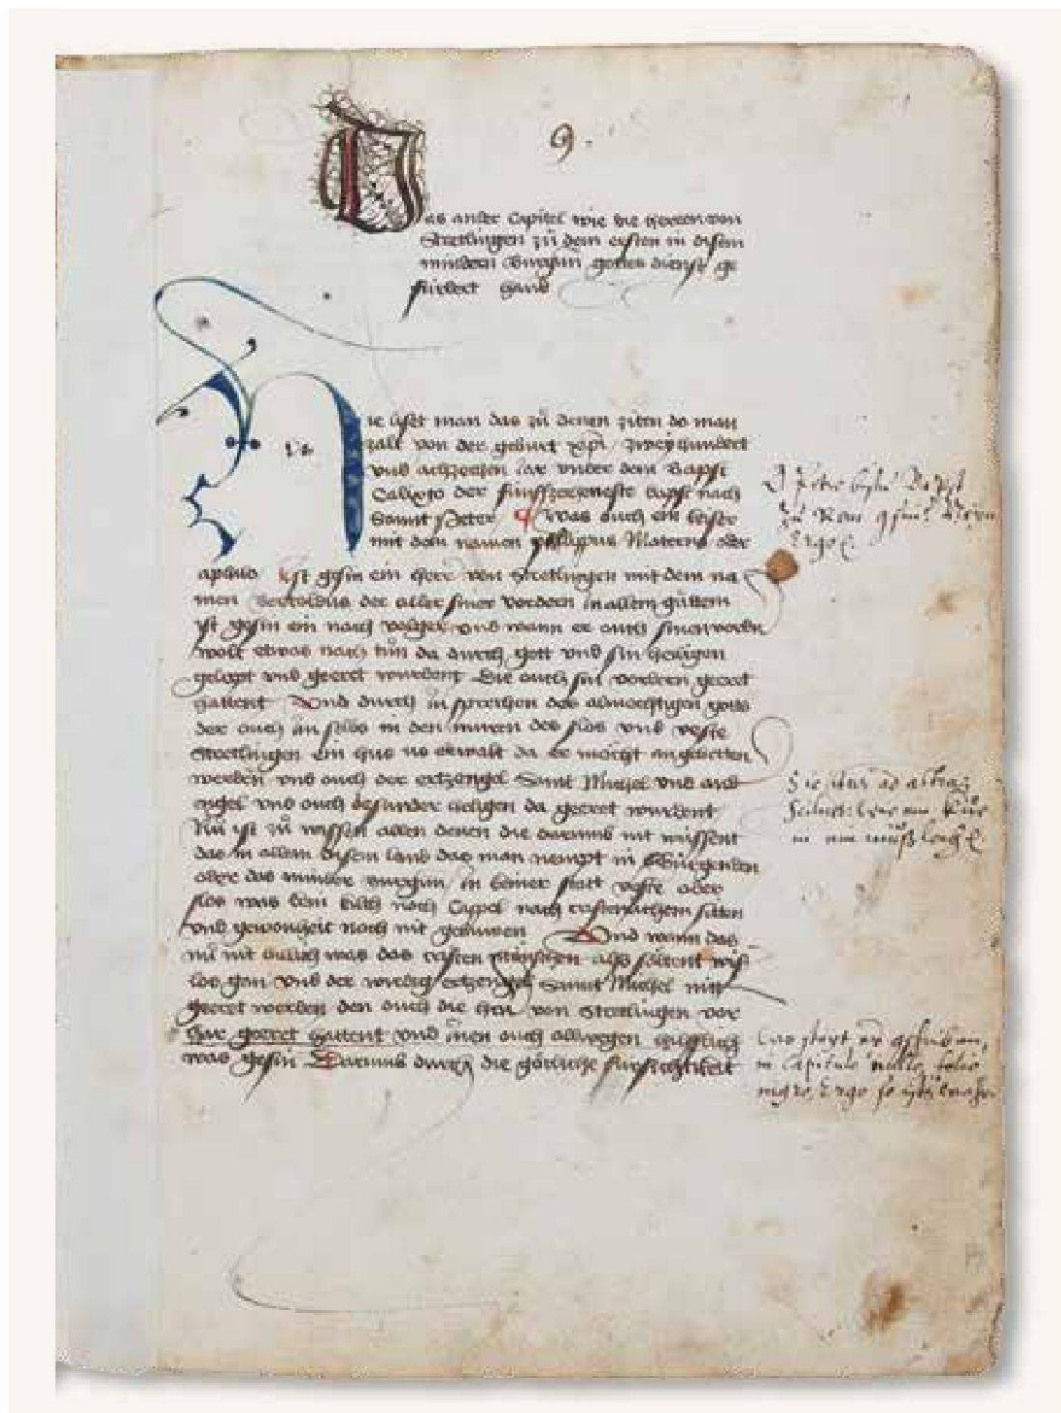 9.
Das ander Capitel wie die Herren von
Stretlingen zů dem ersten in disem
mindern Burgun gottes dienst ge
fürdert hand
Hie lißet man das zů denen ziten do man
zalt von der geburt xpi zweyhundert
vnd achzechen iar vnder dem Bapst
Calixto der fünffzecheneste bapst nach
Sannt Peter Was ouch ein keiser
mit dem namen philippus Maternus oder
aphilo Ist gesin ein herr von Stretlingen mit dem na
men Bertoldus der aller siner vordern in allem gůttem
yst gesin ein nach volger vnd wann er ouch sinen vordern
wolt etwas nach tůn da durch gott vnd sin heiligen
gelopt vnd geeret wurdent Die ouch sin vordren geeret
hattent Vnd durch in sprechen des almechtigen gotts
der ouch im selbs in den muren des slos vnd veste
Stretlingen ein hus us erwalt da er möcht angebetten
werden vnd ouch der ertzengel Sant Michel vnd ander
engel vnd ouch besunder heligen da geeret wurdent
Nů ist zů wissen allen denen die darumb nit wissent
das in allem disem land das man nempt in Bůrgenden
oder das minder burgun in keiner statt veste oder
slos was kein kilch noch Cappel nach cristenlichem sitten
vnd gewonheit noch nit gebuwen Vnd wann das
nů nit billich was das cristen mönschen also söltent wiß
los gan vnd der wirdig ertzengel Sannt Michel nitt
geeret werden den ouch die hern von Stretlingen vor
har geeret hattent vnd inen ouch allwegen hilfflich
was gesin Darumb durch die götliche fürsichtikeit
zů Rom
Ergo
in capitulo folio
Ergo